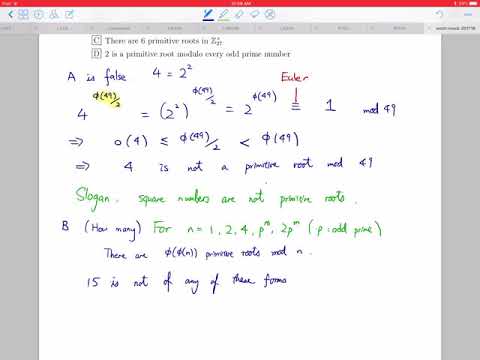 C There are 6 primitive roots in Z*27
D 2 is a primitive root modulo every odd prime number
A is false 4 = 2²
Euler
4^(φ(49)/2) = (2²)^(φ(49)/2) = 2^φ(49) ≡ 1 mod 49
⇒ o(4) ≤ φ(49)/2 < φ(49)
⇒ 4 is not a primitive root mod 49
Slogan. square numbers are not primitive roots.
B (How many) For n = 1, 2, 4, pᵐ, 2pᵐ (p: odd prime)
There are φ(φ(n)) primitive roots mod n.
15 is not of any of these forms